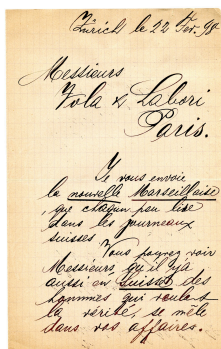 Zürich le 22 Fev. 98
Messieurs
Zola & Labori
Paris.
Je vous envoie
la nouvelle Marseillaise
que chaqun peu lire
dans les journeaux
suisses
Vous pouvez voir
Messieurs qu'il y a
aussi en Suisse des
hommes qui veulent
la vérité, se mêle
dans vos affaires.